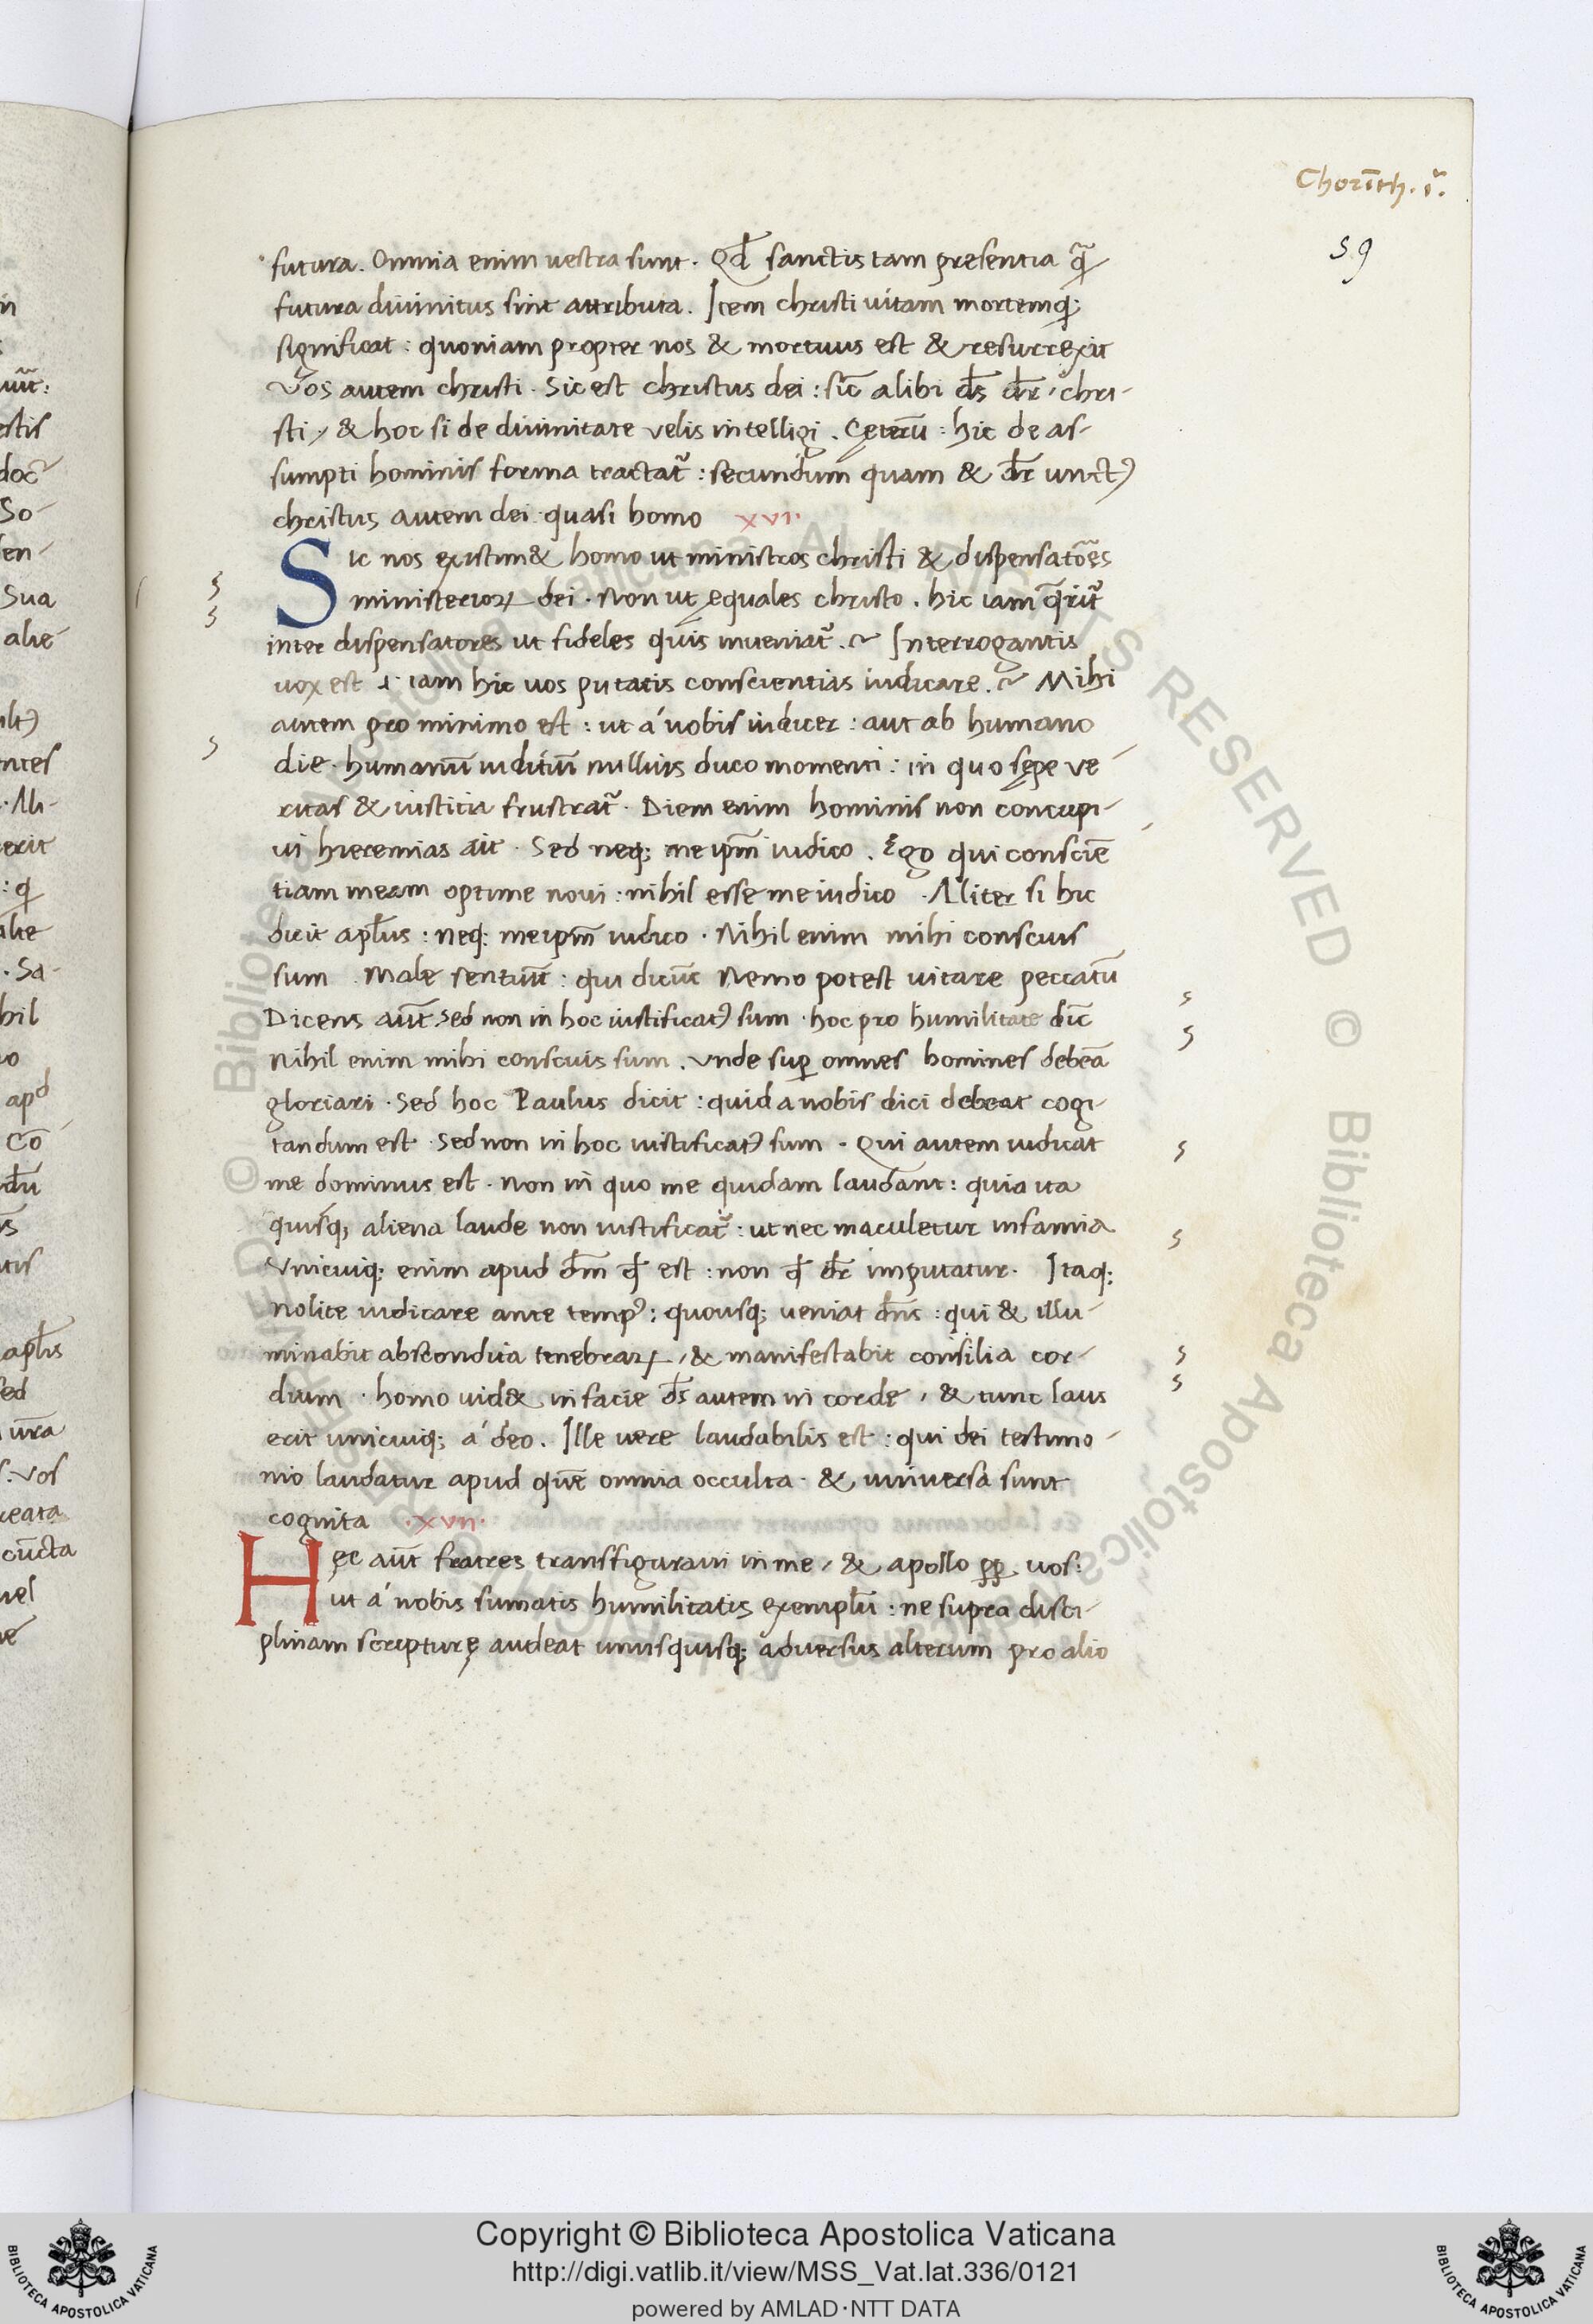 Chorīth. ı᷈.
59
futura. Omnia enim uestra sunt. Qđ sanctis tam presentia q̃
futura diuinitus sint attributa. Item christi uitam mortemq;
significat: quoniam propter nos & mortuus est & resurrexit
Vos autem christi. Sic est christus dei: sic̄ alibi d̄s dr̄, chri-
sti, & hoc si de diuinitate velis intelligi. Cęterū: hic de as-
sumpti hominis forma tractat᷑: secundum quam & dr̄ unctꝰ
christus autem dei quasi homo xvi.
Sic nos existim& homo ut ministros christi & dispensatōes
ministerioꝝ dei. Non ut ęquales christo. hic iam q̄rit᷑
inter dispensatores ut fidelis quis inueniat᷑. Interrogantis
uox est .i. iam hic uos putatis conscientias iudicare. Mihi
autem pro minimo est: ut á uobis iudicer: aut ab humano
die. humanū iuditiū nullius duco momenti: in quo sępe ve-
ritas & iustitia frustrat᷑. Diem enim hominis non concupi-
ui hieremias ait. Sed neq; me ipm̄ iudico. Ego qui conscīe
tiam meam optime noui: nihil esse me iudico. Aliter si hic
dicit apl̄us: neq; me ipm̄ iudico. Nihil enim mihi conscius
sum. Male sentiūt: qui dicūt Nemo potest uitare peccatū
Dicens aūt sed non in hoc iustificatꝰ sum. hoc pro humilitate dic̄
Nihil enim mihi conscius sum. Vnde suꝑ omnes homines debeā
gloriari. Sed hoc Paulus dicit: quid a nobis dici debeat cogi-
tandum est. Sed non in hoc iustificatꝰ sum. Qui autem iudicat
me dominus est. Non in quo me quidam laudant: quia ita
quisq; aliena laude non iustificat᷑: ut nec maculetur infamia
Vnicuiq; enim apud dm̄ qđ est: non qđ dr̄ imputatur. Itaq;
nolite iudicare ante tempꝰ: quousq; ueniat dn̄s: qui & illu-
minabit abscondita tenebraꝝ, & manifestabit consilia cor-
dium. homo uid& in facie d̄s autem in corde, & tunc laus
erit unicuiq; á deo. Ille uere laudabilis est: qui dei testimo-
nio laudatur apud quē omnia occulta & uniuersa sunt
cognita .xvii.
Hęc aūt fratres transfiguraui in me, & apollo ꝓꝑ uos:
ut á nobis sumatis humilitatis exemplū: ne supra disci-
plinam scripturę audeat unusquisq; aduersus alterum pro alio
© Biblioteca Apostolica Vaticana ALL RIGHTS RESERVED © Biblioteca Apostolica Vaticana
Copyright © Biblioteca Apostolica Vaticana
http://digi.vatlib.it/view/MSS_Vat.lat.336/0121
powered by AMLAD·NTT DATA
BIBLIOTECA APOSTOLICA VATICANA
BIBLIOTECA APOSTOLICA VATICANA